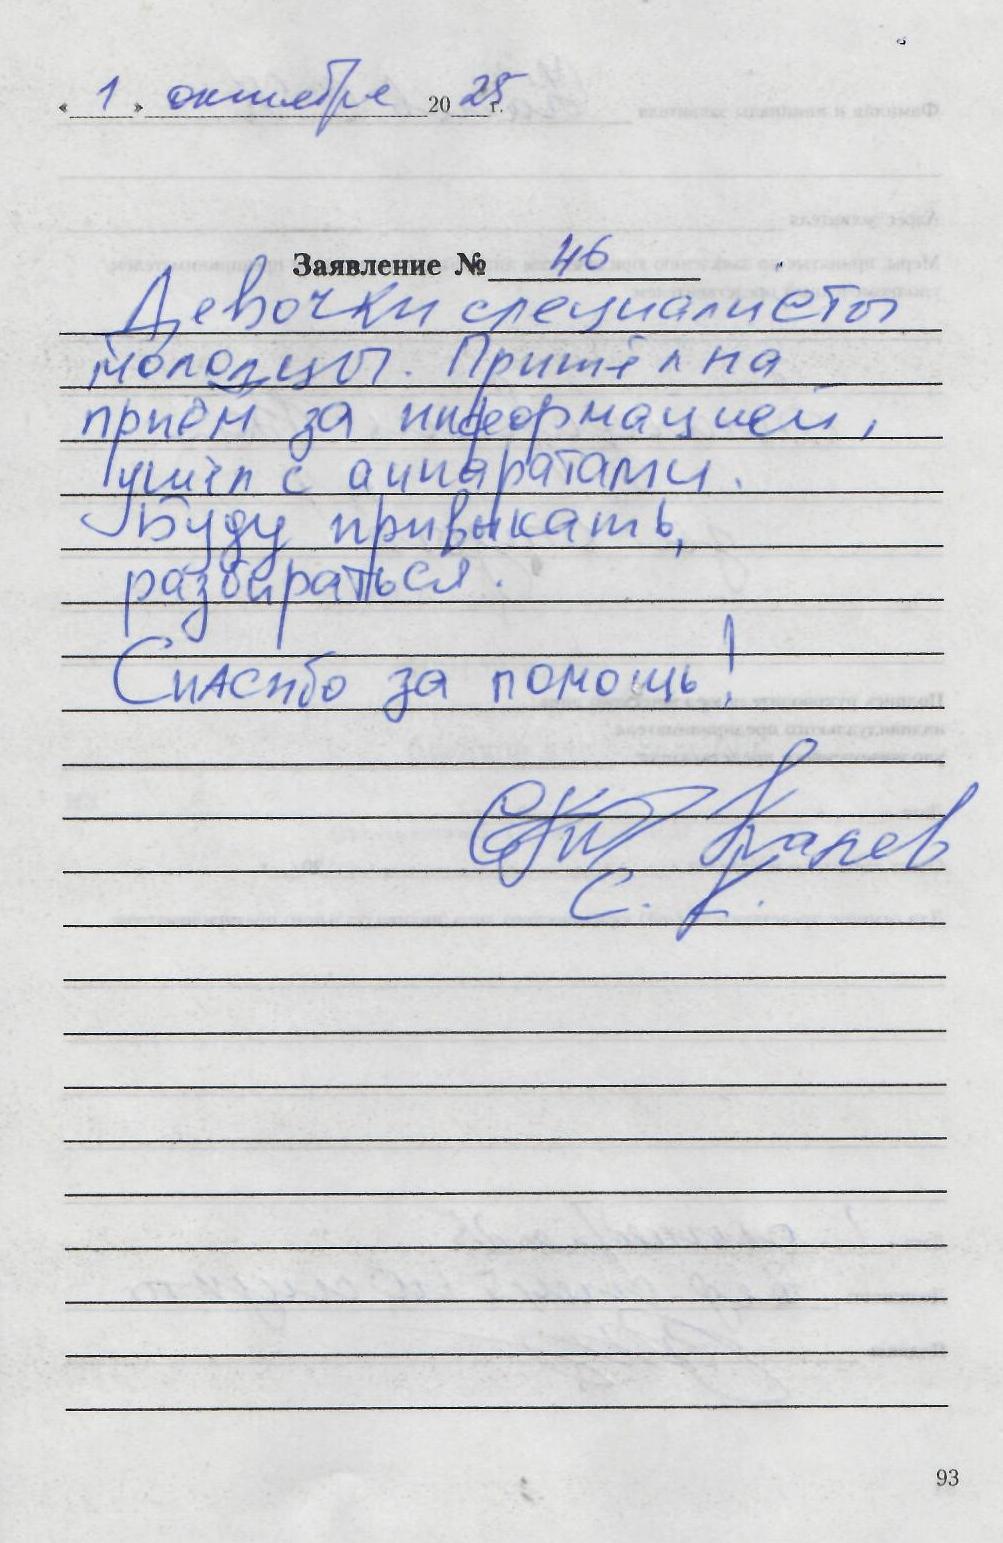 « 1 » октября 2025 г.
Заявление № 46
Девочки специалисты
молодцы. Пришёл на
приём за информацией,
ушёл с аппаратами.
Буду привыкать,
разбираться.
Спасибо за помощь!
С. К.
93